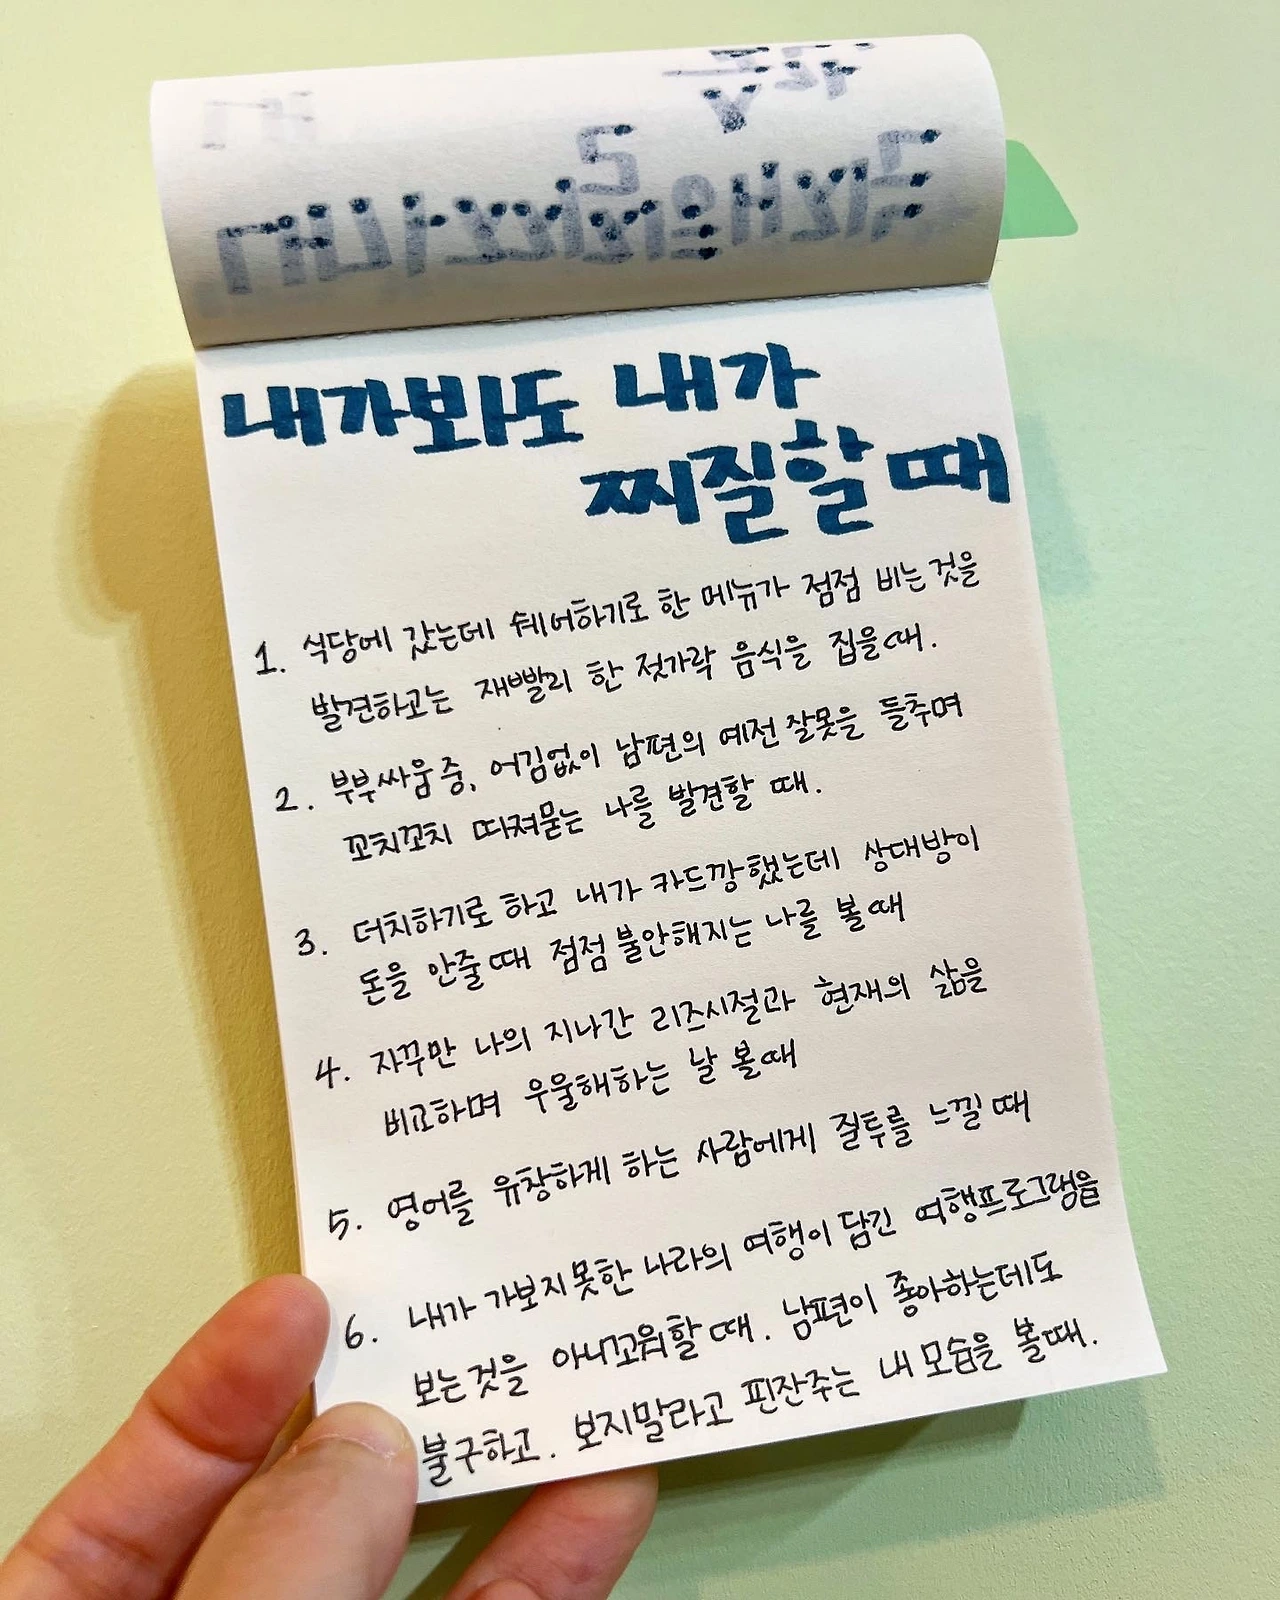 내가봐도 내가
찌질할때
1. 식당에 갔는데 쉐어하기로 한 메뉴가 점점 비는것을
발견하고는 재빨리 한 젓가락 음식을 집을때.
2. 부부싸움 중, 어김없이 남편의 예전 잘못을 들추며
꼬치꼬치 따져묻는 나를 발견할 때.
3. 더치하기로 하고 내가 카드깡했는데 상대방이
돈을 안줄때 점점 불안해지는 나를 볼때
4. 자꾸만 나의 지나간 리즈시절과 현재의 삶을
비교하며 우울해하는 날 볼때
5. 영어를 유창하게 하는 사람에게 질투를 느낄때
6. 내가 가보지못한 나라의 여행이 담긴 여행프로그램을
보는것을 아니꼬워할때. 남편이 좋아하는데도
불구하고. 보지말라고 핀잔주는 내모습을 볼때.